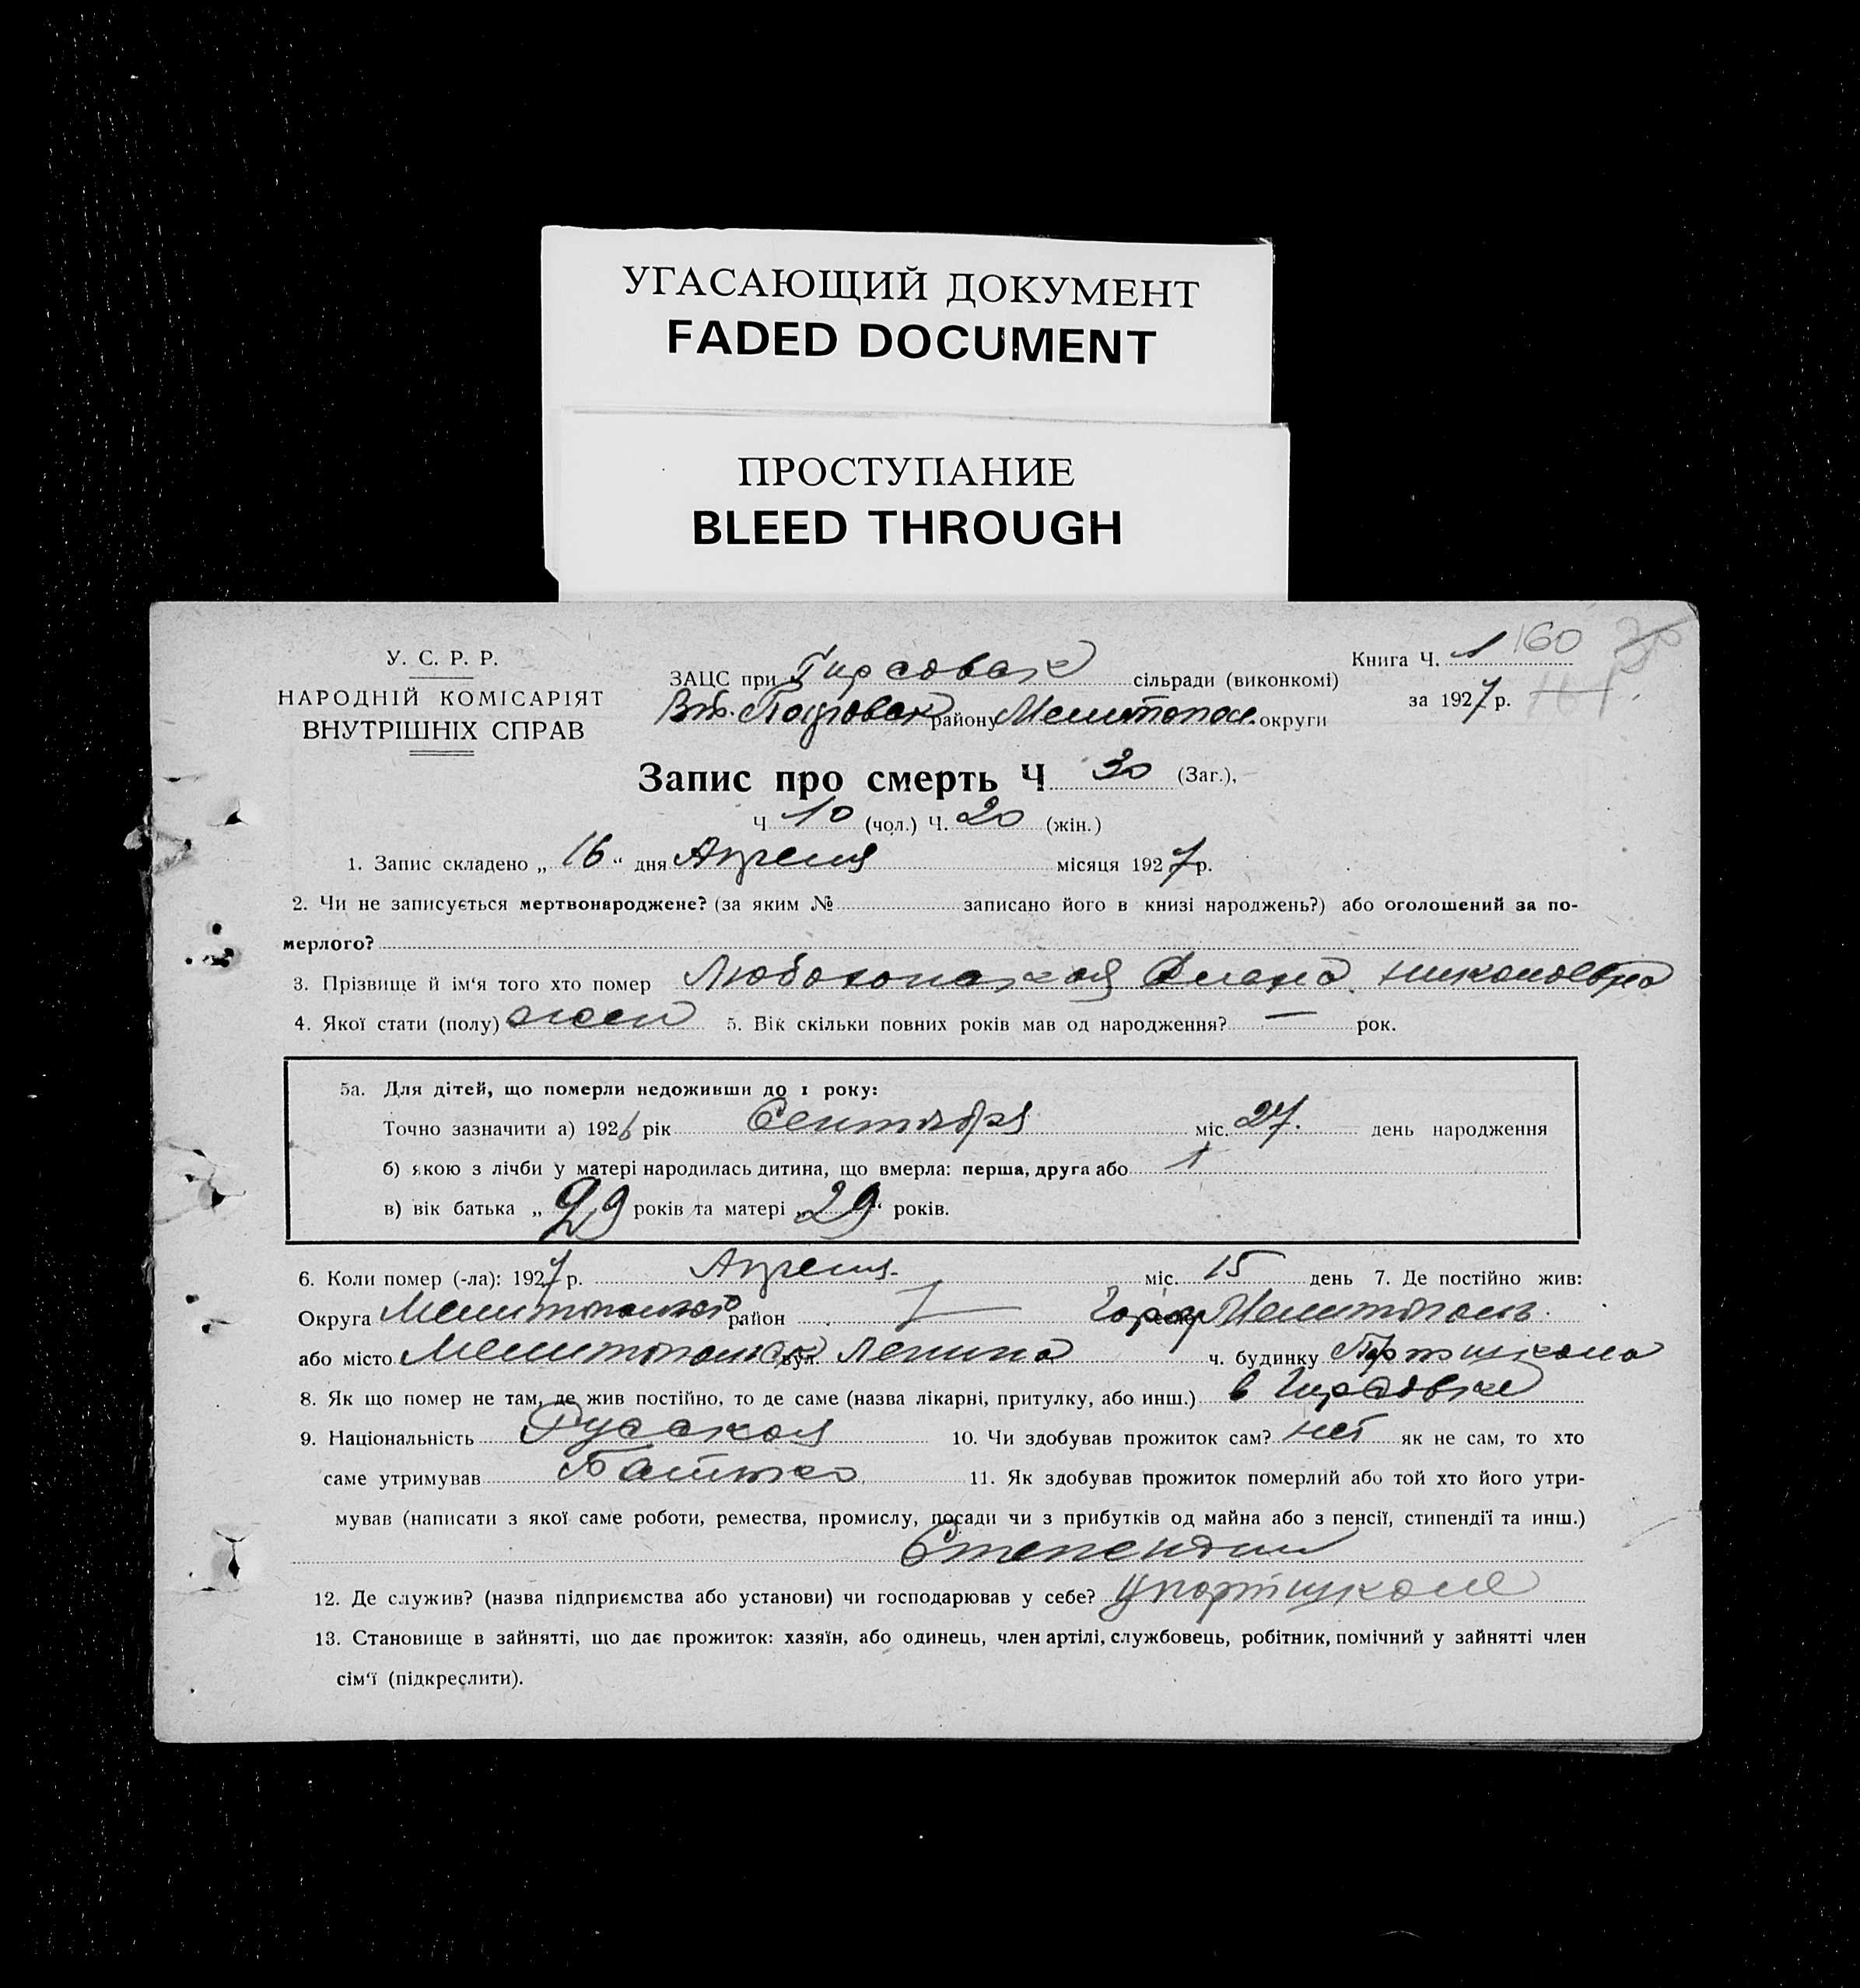 УГАСАЮЩИЙ ДОКУМЕНТ
FADED DOCUMENT
ПРОСТУПАНИЕ
BLEED THROUGH
У. С. Р. Р.
НАРОДНІЙ КОМІСАРІЯТ
ВНУТРІШНІХ СПРАВ
ЗАЦС при Гирсовск сільради (виконкомі)
району Мелитопол. округи
Книга Ч. 1 160
за 1927 р.
Запис про смерть Ч 30 (Заг.),
Ч 10 (чол.) Ч. 20 (жін.)
1. Запис складено „ 16 “ дня Апреля місяця 1927 р.
2. Чи не записується мертвонароджене? (за яким № записано його в книзі народжень?) або оголошений за по-
мерлого?
3. Прізвище й ім‘я того хто помер
4. Якої стати (полу) жен 5. Вік скільки повних років мав од народження? — рок.
5а. Для дітей, що померли недоживши до 1 року:
Точно зазначити а) 1926 рік Сентября міс. 27. день народження
б) якою з лічби у матері народилась дитина, що вмерла: перша, друга або 1
в) вік батька „ 29 років та матері „ 29 “ років.
6. Коли помер (-ла): 1927 р. Апреля міс. 15 день 7. Де постійно жив:
Округа район Мелитополь
або місто вул. Ленина ч. будинку Партшкола
8. Як що помер не там, де жив постійно, то де саме (назва лікарні, притулку, або инш.) в Гирсовке
9. Національність Русская 10. Чи здобував прожиток сам? нет як не сам, то хто
саме утримував Батько 11. Як здобував прожиток померлий або той хто його утри-
мував (написати з якої саме роботи, ремества, промислу, посади чи з прибутків од майна або з пенсії, стипендії та инш.)
Степендии
12. Де служив? (назва підприємства або установи) чи господарював у себе? У партшколе
13. Становище в зайнятті, що дає прожиток: хазяїн, або одинець, член артілі, службовець, робітник, помічний у зайнятті член
сім‘ї (підкреслити).